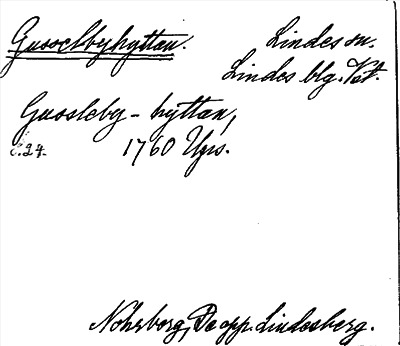 Gusselbyhyttan. Lindes sn.
Lindes blg. Vstm.
Gusseleby-hyttan,
E.24. 1760 Uprs.
Nohrborg, De opp. Lindesberg.